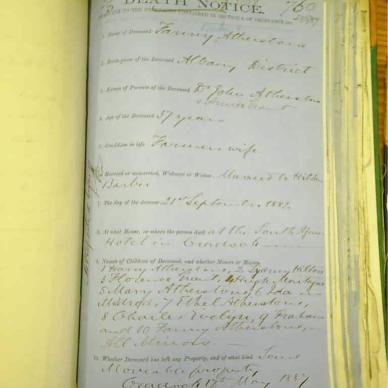 DEATH NOTICE.
760
1. Name of Deceased Fanny Atherstone
2. Birth-place of the Deceased Albany District
3. Names of Parents of the Deceased Dr John Atherstone
4. Age of the Deceased 37 years
5. Condition in life Farmers wife
6. Married or unmarried, Widower or Widow Married to Hilton
Barber
7. The day of the decease 21st September 1882
8. At what House, or where the person died at the South
Hotel in Cradock
9. Names of Children of Deceased, and whether Minors or Majors
1 Harry Atherstone, 2 Sydney Hilton
3 Florence 4 Hugh
5 Mary Atherstone 6
7 Ethel Atherstone,
8 Charles Evelyn, 9 Graham
and 10 Fanny Atherstone,
All Minors
10. Whether Deceased has left any Property, and of what kind Some
Movable property
Cradock 17th May 1887